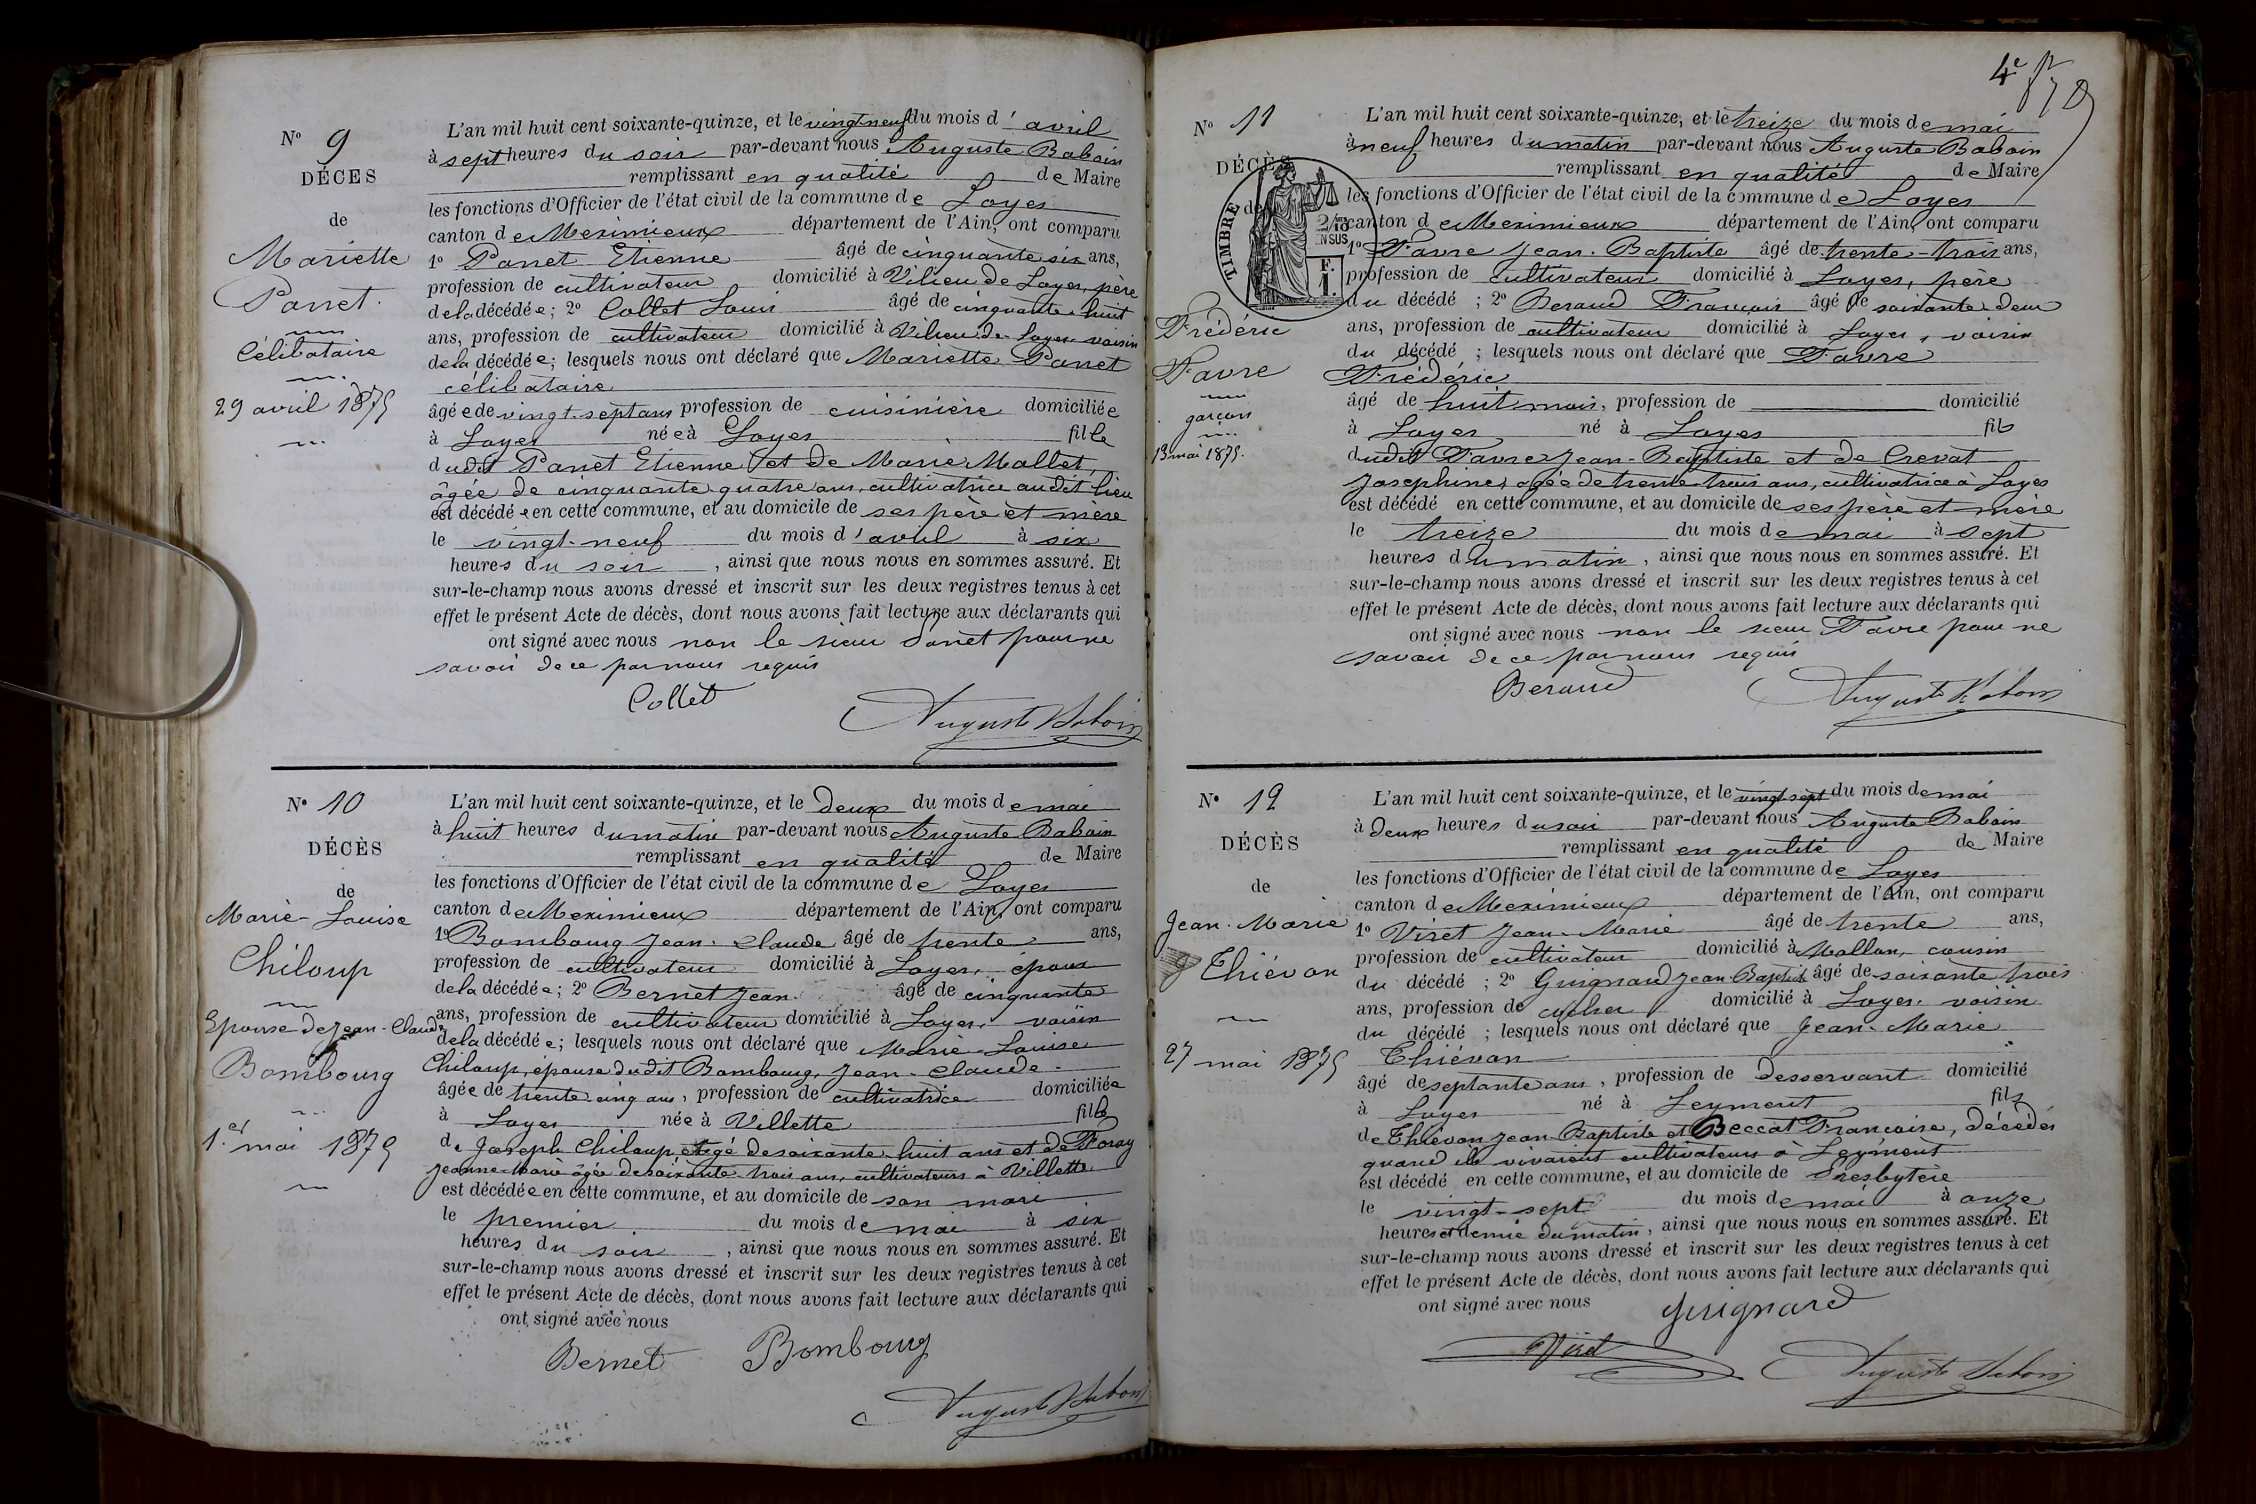 N° 9
DÉCES
de
Mariette
Panet.
Célibataire
29 avril 1875
L'an mil huit cent soixante-quinze, et le vingt neuf du mois d'avril
à sept heures du soir par-devant nous Auguste Baboin
remplissant en qualité de Maire
les fonctions d'Officier de l'état civil de la commune de Loyes
canton de Meximieux département de l'Ain, ont comparu
1° Panet Etienne âgé de cinquante six ans,
profession de cultivateur domicilié à Vilieu de Loyes, père
de la décédée; 2° Collet Louis âgé de cinquante huit
ans, profession de cultivateur domicilié à Vilieu de Loyes voisin
de la décédée; lesquels nous ont déclaré que Mariette Panet
célibataire
âgée de vingt-sept ans profession de cuisinière domiciliée
à Loyes née à Loyes fille
dudit Panet Etienne et de Marie Mallet,
âgée de cinquante quatre ans, cultivatrice audit lieu
est décédée en cette commune, et au domicile de ses père et mère
le vingt-neuf du mois d'avril à six
heures du soir, ainsi que nous nous en sommes assuré. Et
sur-le-champ nous avons dressé et inscrit sur les deux registres tenus à cet
effet le présent Acte de décès, dont nous avons fait lecture aux déclarants qui
ont signé avec nous non le sieur Panet pour ne
savoir de ce par nous requis
Collet
Auguste Baboin
N° 10
DÉCÈS
de
Marie-Louise
Chiloup
Epouse de Jean-Claude
Bombourg
1er mai 1875
L'an mil huit cent soixante-quinze, et le deux du mois de mai
à huit heures du matin par-devant nous Auguste Baboin
remplissant en qualité de Maire
les fonctions d'Officier de l'état civil de la commune de Loyes
canton de Meximieux département de l'Ain, ont comparu
1° Bombourg Jean-Claude âgé de trente ans,
profession de cultivateur domicilié à Loyes, époux
de la décédée; 2° Bernet Jean âgé de cinquante
ans, profession de cultivateur domicilié à Loyes, voisin
de la décédée; lesquels nous ont déclaré que Marie-Louise
Chiloup, épouse dudit Bombourg, Jean-Claude
âgée de trente-cinq ans, profession de cultivatrice domiciliée
à Loyes née à Villette fille
de Joseph Chiloup âgé de soixante-huit ans et de Foray
Jeanne-Marie âgée de soixante-trois ans, cultivateurs à Villette
est décédée en cette commune, et au domicile de son mari
le premier du mois de mai à six
heures du soir, ainsi que nous nous en sommes assuré. Et
sur-le-champ nous avons dressé et inscrit sur les deux registres tenus à cet
effet le présent Acte de décès, dont nous avons fait lecture aux déclarants qui
ont signé avec nous
Bernet Bombourg
Auguste Baboin
4e
N° 11
DÉCÈS
de
TIMBRE
Frédéric
Favre
garçon
13 mai 1875.
L'an mil huit cent soixante-quinze, et le treize du mois de mai
à neuf heures du matin par-devant nous Auguste Baboin
remplissant en qualité de Maire
les fonctions d'Officier de l'état civil de la commune de Loyes
canton de Meximieux département de l'Ain, ont comparu
1° Favre Jean-Baptiste âgé de trente-trois ans,
profession de cultivateur domicilié à Loyes, père
du décédé; 2° Beraud François âgé de soixante-deux
ans, profession de cultivateur domicilié à Loyes, voisin
du décédé; lesquels nous ont déclaré que Favre
Frédéric
âgé de huit mois, profession de domicilié
à Loyes né à Loyes fils
dudit Favre Jean-Baptiste et de Crevat
Josephine, agée de trente-trois ans, cultivatrice à Loyes
est décédé en cette commune, et au domicile de ses père et mère
le treize du mois de mai à sept
heures du matin, ainsi que nous nous en sommes assuré. Et
sur-le-champ nous avons dressé et inscrit sur les deux registres tenus à cet
effet le présent Acte de décès, dont nous avons fait lecture aux déclarants qui
ont signé avec nous non le sieur Favre pour ne
savoir de ce par nous requis
Beraud
Auguste Baboin
N° 12
DÉCÈS
de
Jean-Marie
Thiévon
27 mai 1875
L'an mil huit cent soixante-quinze, et le vingt sept du mois de mai
à deux heures du soir par-devant nous Auguste Baboin
remplissant en qualité de Maire
les fonctions d'Officier de l'état civil de la commune de Loyes
canton de Meximieux département de l'Ain, ont comparu
1° Viret Jean-Marie âgé de trente ans,
profession de cultivateur domicilié à Mollon, cousin
du décédé; 2° Guignard Jean-Baptiste âgé de soixante trois
ans, profession de domicilié à Loyes, voisin
du décédé; lesquels nous ont déclaré que Jean-Marie
Thiévon
âgé de septante ans, profession de desservant domicilié
à Loyes né à Leyment fils
de Thiévon Jean-Baptiste et Beccat Françoise, décédés
quand ils vivaient cultivateurs à Leyment
est décédé en cette commune, et au domicile de Presbytère
le vingt-sept du mois de mai à onze
heures et demie du matin, ainsi que nous nous en sommes assuré. Et
sur-le-champ nous avons dressé et inscrit sur les deux registres tenus à cet
effet le présent Acte de décès, dont nous avons fait lecture aux déclarants qui
ont signé avec nous
Guignard
Viret
Auguste Baboin